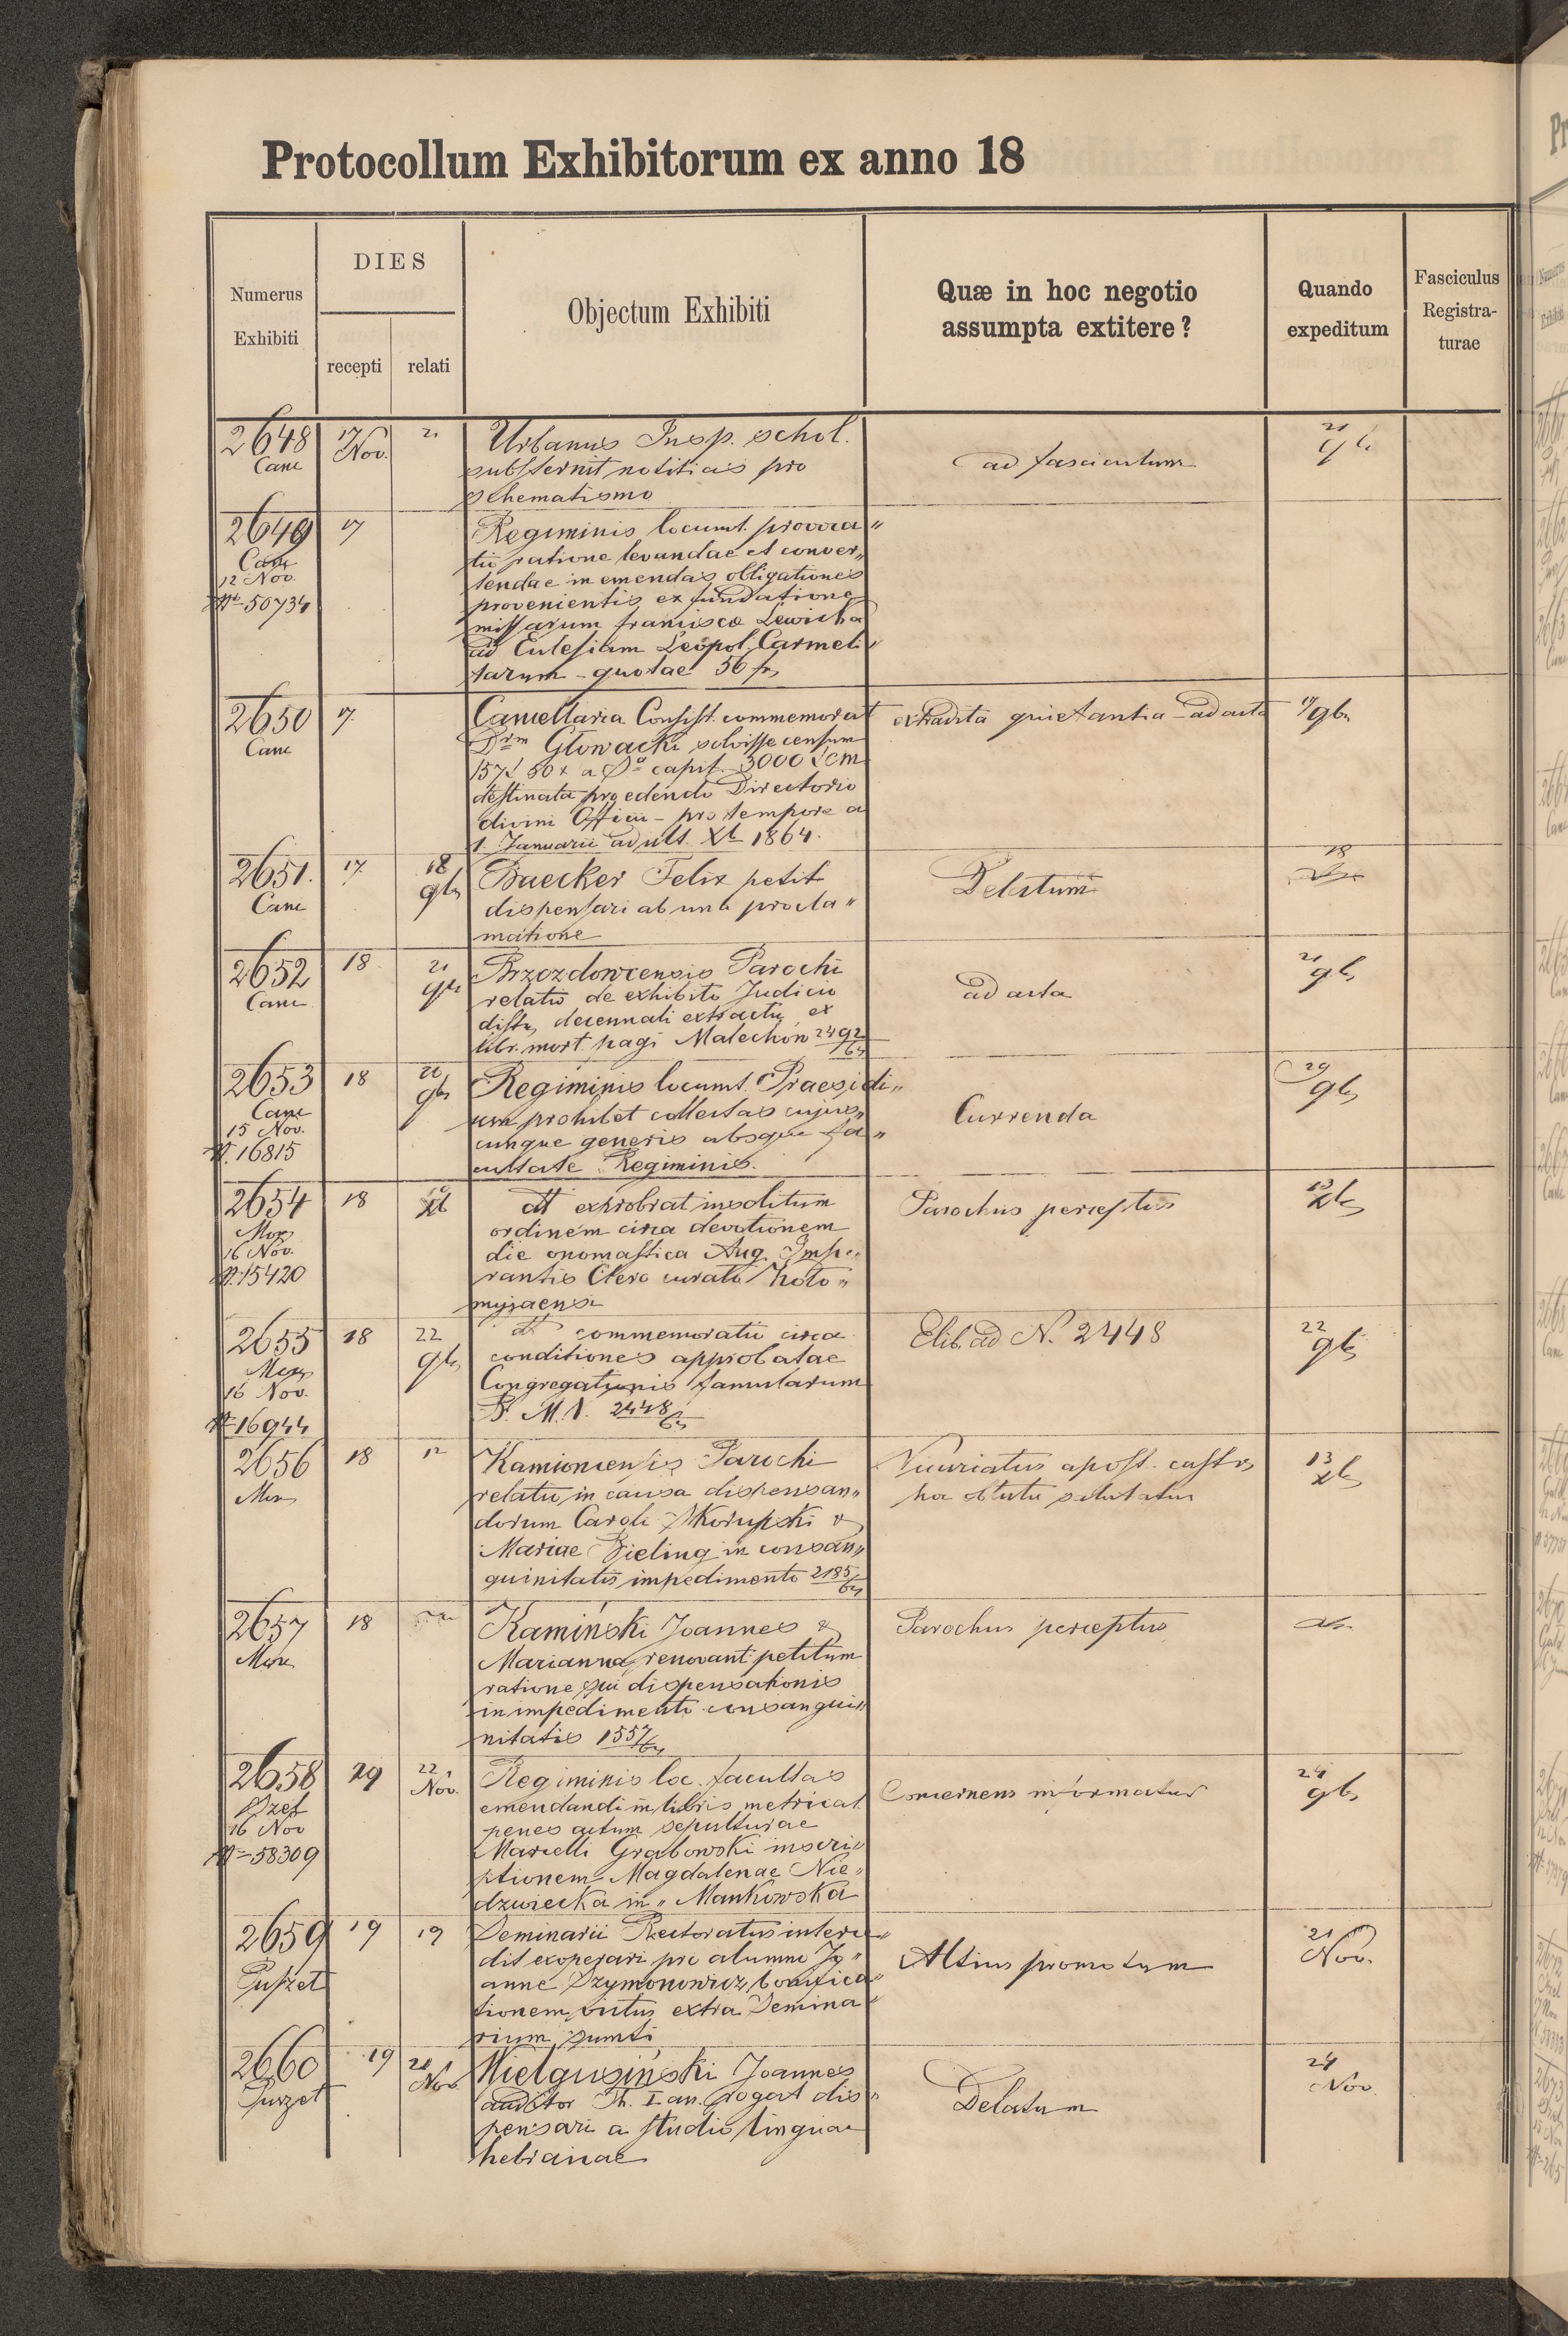 Protocollum Exhibitorum ex anno 18
Numerus
Exhibiti
DIES
recepti
relati
Objectum Exhibiti
Quæ in hoc negotio
assumpta extitere?
Quando
expeditum
Fasciculus
Registra-
turae
2648
Canc
17
Nov.
21
Urbanus Insp. schol.
substernit notitias pro
schematismo
ad fasciculum
21
9b
2649
Canc
12 Nov.
N. 50734
17
Regiminis locumt. provoca„
tio ratione levandae et conver„
tendae in emendas obligationes
provenientis ex fundatione
missarum Francisca Lewicka
ad Eclesiam Leopol. Carmeli„
tarum - quotae 56 fr
2650
Canc
17.
Cancellaria Consist. commemorat
Drm Głowacki solvisse censum
157 f 50 x a Do capit. 3000 f CM
destinata pro edendo Directorio
divini Officii - pro tempore a
1. Januarii ad ult. Xb 1864.
extradita quietantia - ad acta
17 9br
2651.
Canc
17.
18
9br
Baecker Felix petit
dispensari ab una procla„
matione
Delatum
18
2652
Canc
18
21
9br
Brzozdowcensis Parochi
relatio de exhibito Judicio
distr. decennali extractu ex
libr. mort. pagi Malechów 2492/64
ad acta
21
9br
2653
Canc
15 Nov.
N. 16815
18
22
9br
Regiminis locumt. Praesidi„
um prohibet collectas cujus„
cunque generis absque fa„
cultate Regiminis.
Currenda
29
9br
2654
Mor
16 Nov.
N. 15420
18
Xb
dt exprobrat insolitum
ordinem circa devotionem
die onomastica Aug. Impe„
rantis Clero curato Koło„
myjaensi
Parochus perceptus
13
Xb
2655
Mor
16 Nov.
N. 16944
18
22
9br
dt commemoratio circa
conditiones approbatae
Congregationis famularum
B. M. V. 2448/64
Elib. ad N. 2448
22
9br
2656
Mor
18
12
Kamioncensis Parochi
relatio in causa dispensan„
dorum Caroli Skorupski &
Mariae Bieling in consan„
guinitatis impedimento 2185/64
Vicariatus apost. castr.
hoc obtutu salutatur
13
Xb
2657
Mor
18
Kamiński Joannes &
Marianna renovant petitum
ratione sui dispensationis
in impedimento consangui„
nitatis 1557/64
Parochus perceptus
2658
Szef
16 Nov
N. 58309
19
22
Nov.
Regiminis loc. facultas
emendandi in libris metrical
penes actum sepulturae
Marcelli Grabowski inscri„
ptionem Magdalenae Nie„
dzwiecka in „Mankowska
Concernens informatur
24
9br
2659
Puszet
19
19
Seminarii Rectoratus interce„
dit exoperari pro alumno Jo„
anne Szymonowicz bonifica„
tionem victus extra Semina„
rium sumti
Altius promotum
21
Nov.
2660
Puszet
19
21
Nov
Wielgusiński Joannes
auditor Th. I an. rogat dis„
pensari a studio linguae
hebraicae
Delatum
24
Nov.